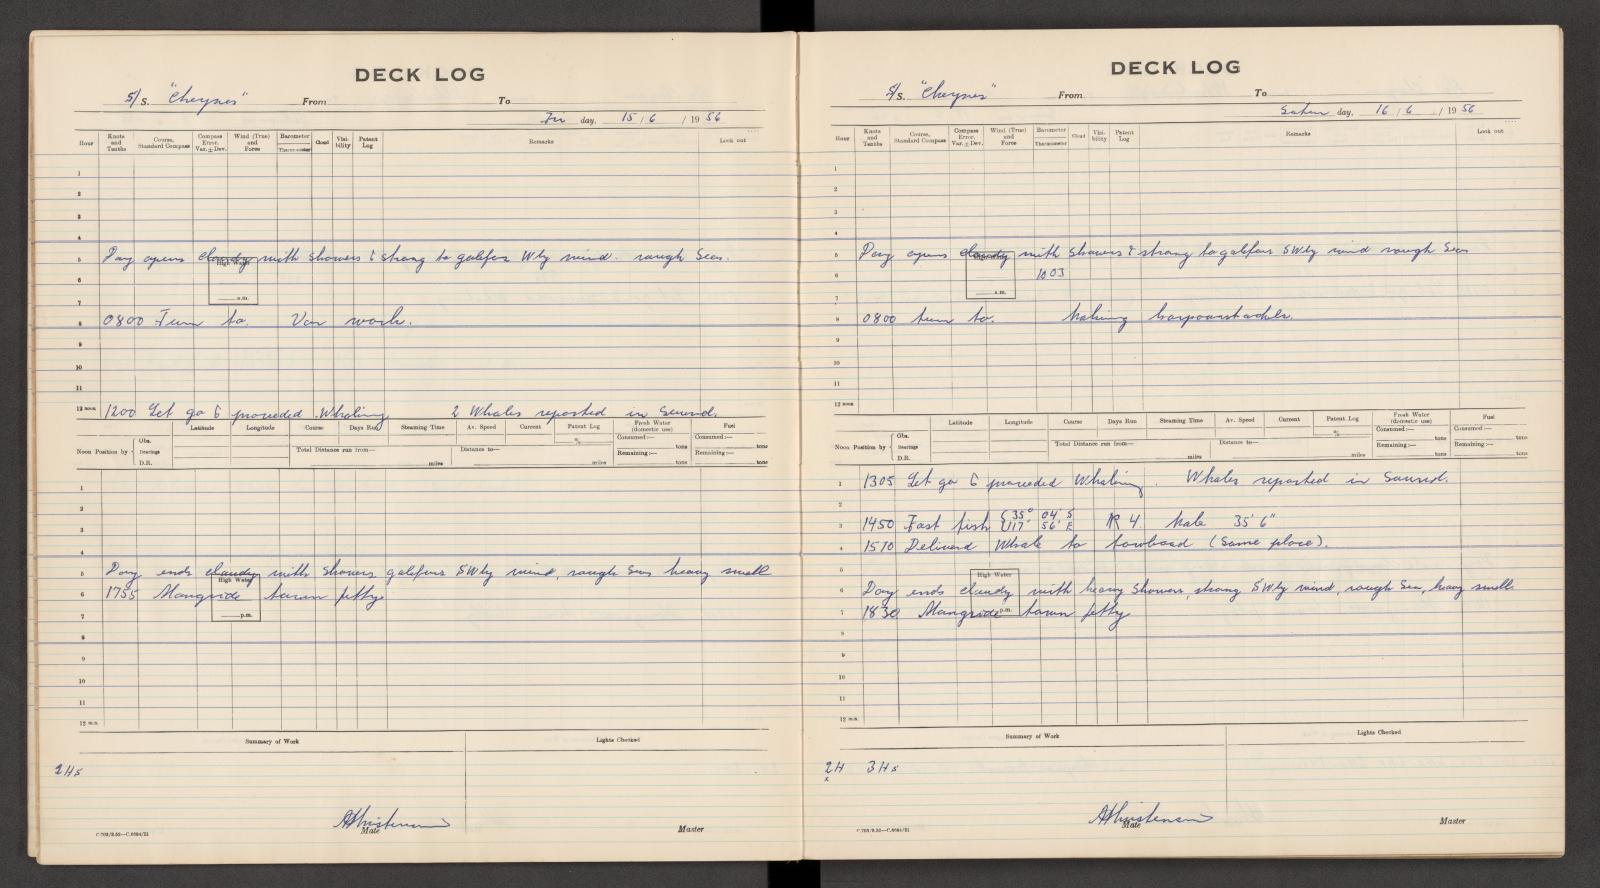 DECK LOG
S/S. "Cheynes" From To
Fri day, 15 / 6 / 19 56
Hour Knots and Tenths Course, Standard Compass Compass Error. Var. ± Dev. Wind (True) and Force Barometer Thermometer Cloud Visibility Patent Log Remarks Look out
1
2
3
4
5 Day opens cloudy with showers & strong to galeforce Wly wind. rough Seas.
High Water
6
a.m.
7
8 0800 Turn to. Var work.
9
10
11
12 noon 1200 Let go & proceeded Whaling 2 Whales reported in Sound.
Latitude Longitude Course Days Run Steaming Time Av. Speed Current Patent Log Fresh Water (domestic use) Fuel
% Consumed:— tons Consumed:— tons
Noon Position by Obs. Bearings D.R. Total Distance run from— miles Distance to— miles Remaining:— tons Remaining:— tons
1
2
3
4
5 Day ends cloudy with showers galeforce SWly wind, rough Seas heavy swell
High Water
6 1755 Alongside town jetty
p.m.
7
8
9
10
11
12 m.n.
Summary of Work Lights Checked
2 Hs
AChristensen
Mate Master
C.702/2.52—C.6684/51
DECK LOG
S/S. "Cheynes" From To
Satur day, 16 / 6 / 19 56
Hour Knots and Tenths Course, Standard Compass Compass Error. Var. ± Dev. Wind (True) and Force Barometer Thermometer Cloud Visibility Patent Log Remarks Look out
1
2
3
4
5 Day opens cloudy with showers & strong to galeforce SWly wind rough Seas
High Water
6 1003
a.m.
7
8 0800 turn to. Making harpoonstackle.
9
10
11
12 noon
Latitude Longitude Course Days Run Steaming Time Av. Speed Current Patent Log Fresh Water (domestic use) Fuel
% Consumed:— tons Consumed:— tons
Noon Position by Obs. Bearings D.R. Total Distance run from— miles Distance to— miles Remaining:— tons Remaining:— tons
1 1305 Let go & proceeded Whaling. Whales reported in Sound.
2
3 1450 Fast fish 35° 04' S 117° 56' E NR 4. Male 35' 6"
4 1510 Delivered Whale to towboad (Same place).
5
High Water
6 Day ends cloudy with heavy showers, strong SWly wind, rough Sea, heavy swell.
7 1830 Alongside p.m. town jetty
8
9
10
11
12 m.n.
Summary of Work Lights Checked
2H 3 Hs
x
AChristensen
Mate Master
C.702/2.52—C.6684/51